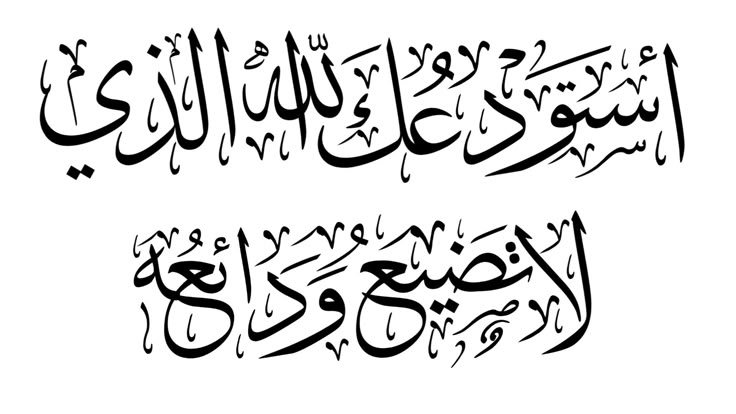 أستودعك الله الذي
لا تضيع ودائعه